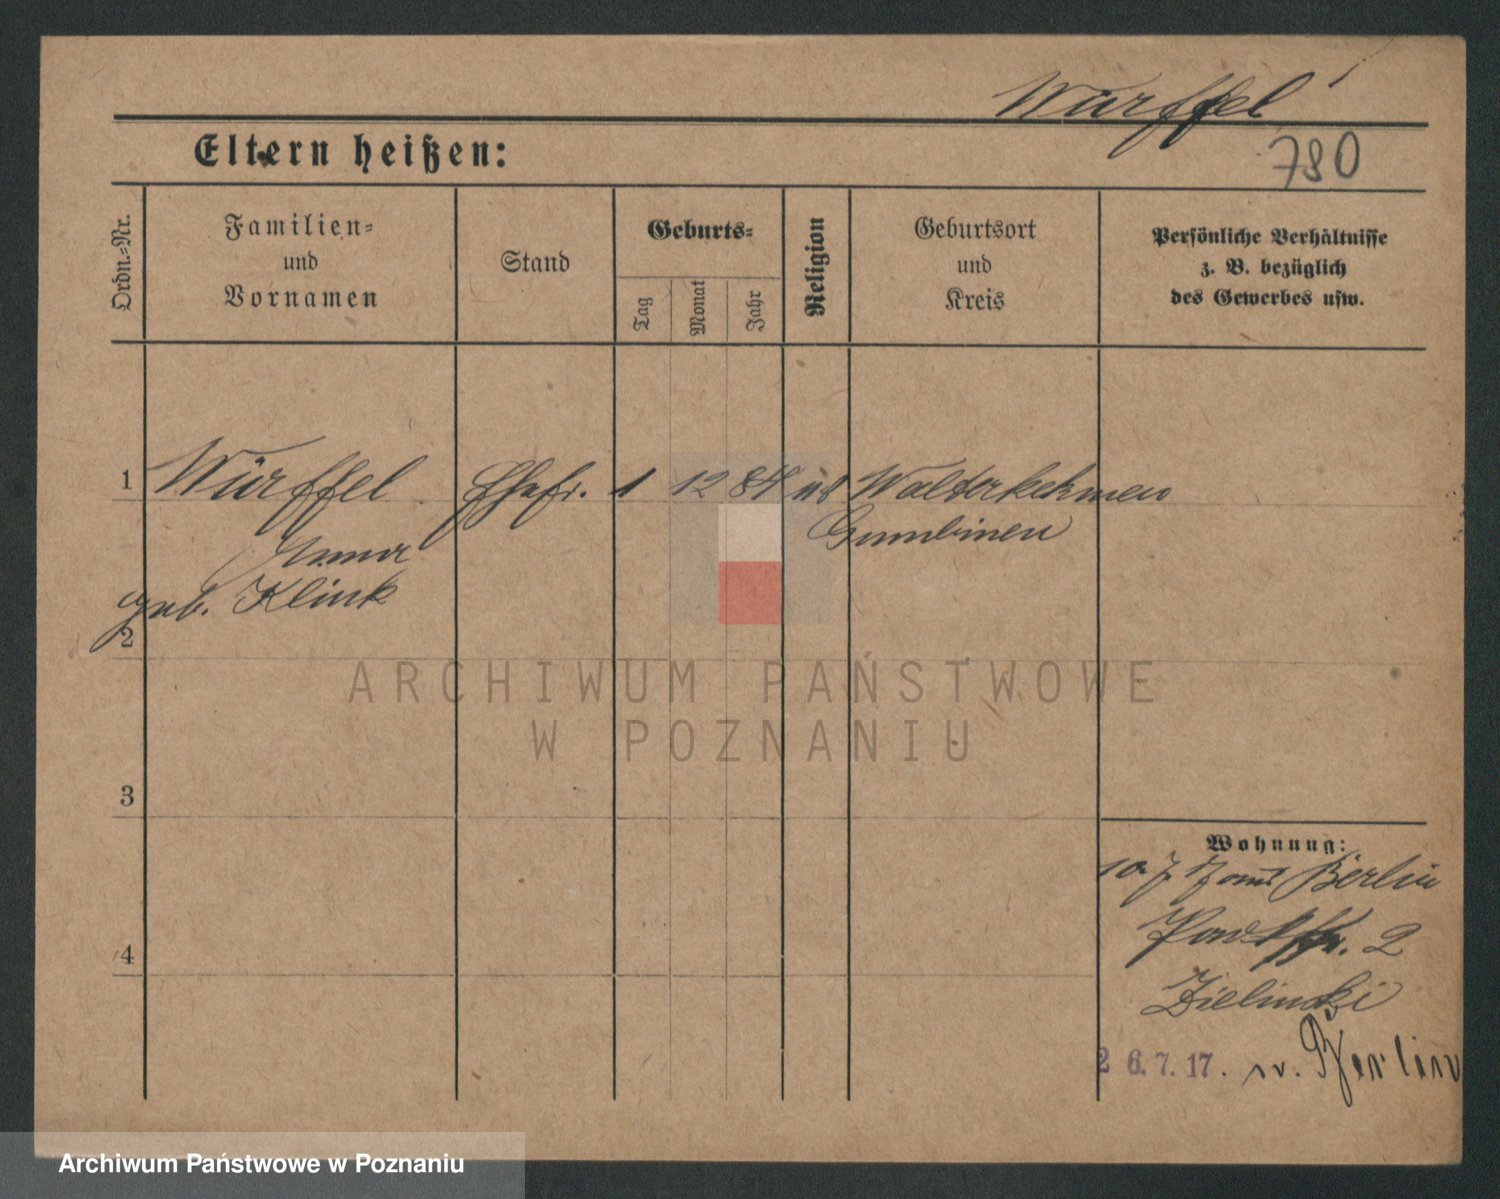 Würffel
Eltern heißen:
780
Ordn.-Nr.
Familien-
und
Vornamen
Stand
Geburts-
Tag
Monat
Jahr
Religion
Geburtsort
und
Kreis
Persönliche Verhältnisse
z. B. bezüglich
des Gewerbes usw.
1
Würffel
geb. Klink
Ehefr.
1 12 84
Walterkehmen
Gumbinen
2
3
4
Wohnung:
10.7.17 aus Berlin
2
Zielinski
26.7.17. n. Berlin
ARCHIWUM PAŃSTWOWE
W POZNANIU
Archiwum Państwowe w Poznaniu